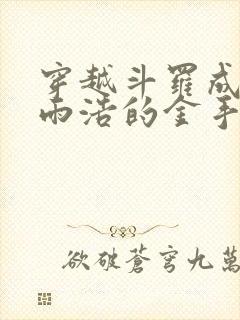 穿越斗羅成
雨浩的金手
欲破蒼穹九萬